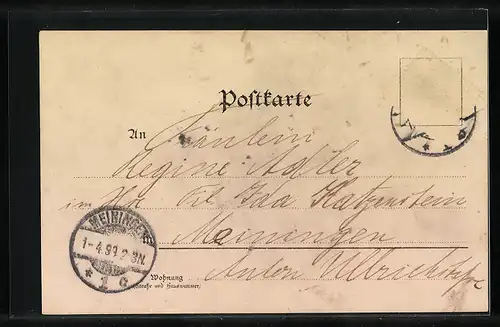 Postkarte
An Fräulein
Regine Adler
im Hs. Frl. Ida Katzenstein
Meiningen
MEININGEN
1-4.99.2-3N.
* 1 c
Wohnung
(Straße und Hausnummer)
Anton Ullrichstraße